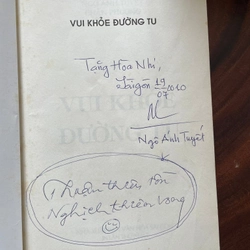 VUI KHỎE ĐƯỜNG TU
Tặng Hòa Nhi,
Sàigòn 19/07 2010
VUI KHỎE
ĐƯỜNG
Ngô Ánh Tuyết
Thuận thiên tồn
Nghịch thiên vong